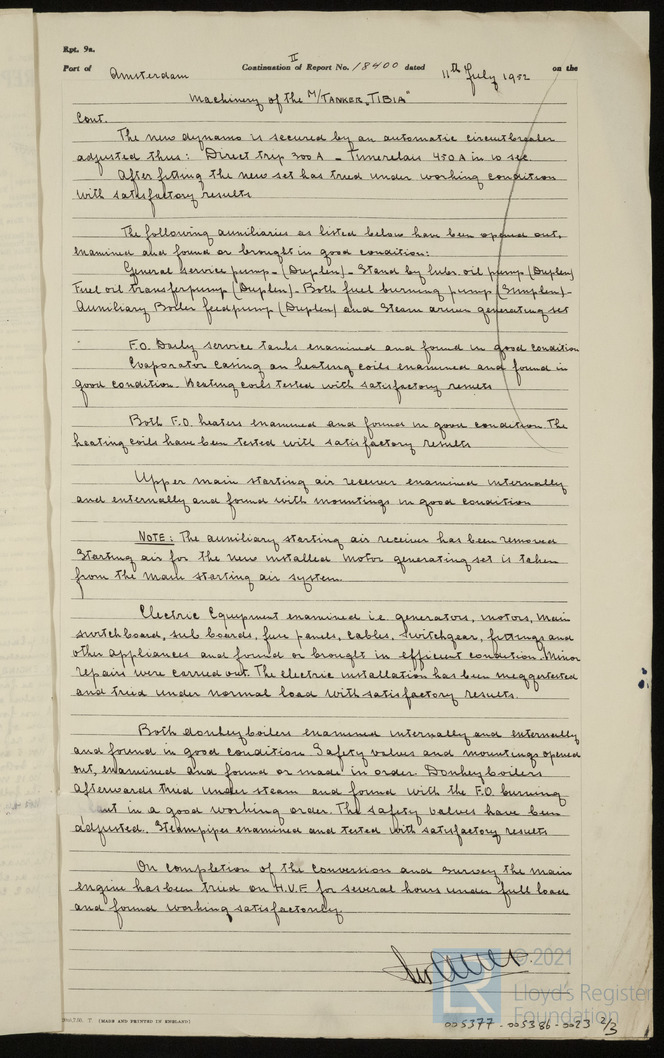 Rpt. 9a.
II
Port of Amsterdam Continuation of Report No. 18400 dated 11th July 1952 on the
Machinery of the M/TANKER „TIBIA"
Cont.
The new dynamo is secured by an automatic circuitbreaker
adjusted thus: Direct trip 300 A – Timerelais 450 A in 10 sec.
After fitting the new set has tried under working condition
with satisfactory results
The following auxiliaries as listed below have been opened out,
examined and found or brought in good condition:
General service pump – (Duplex) – Stand by lubr. oil pump (Duplex)
Fuel oil transferpump (Duplex) – Both fuel burning pump (Simplex) –
Auxiliary Boiler feedpump (Duplex) and Steam driven generating set
F.O. Daily service tanks examined and found in good condition
Evaporator casing an heating coils examined and found in
good condition. Heating coils tested with satisfactory results
Both F.O. heaters examined and found in good condition The
heating coils have been tested with satisfactory results
Upper main starting air receiver examined internally
and externally and found with mountings in good condition
NOTE: The auxiliary starting air receiver has been removed
Starting air for the new installed motor generating set is taken
from the main starting air system.
Electric Equipment examined i.e. generators, motors, main
switchboard, sub boards, fuse panels, cables, switchgear, fittings and
other appliances and found or brought in efficient condition. Minor
repairs were carried out. The electric installation has been meggertested
and tried under normal load with satisfactory results.
Both donkeyboilers examined internally and externally
and found in good condition Safety valves and mountings opened
out, examined and found or made in order. Donkeyboilers
afterwards tried under steam and found with the F.O. burning
in a good working order. The safety valves have been
adjusted. Steampipes examined and tested with satisfactory results
On completion of the conversion and survey the main
engine has been tried on H.V.F. for several hours under full load
and found working satisfactorily
© 2021
LR Lloyd's Register
Foundation
[MADE AND PRINTED IN ENGLAND]
005377-005386-0023 2/3